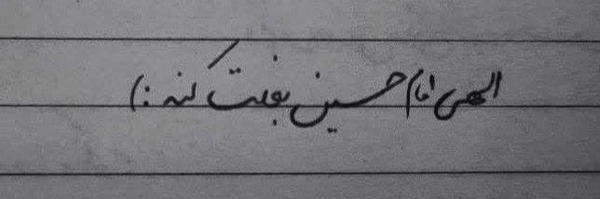 الهی امام حسین بغلت کنه :)